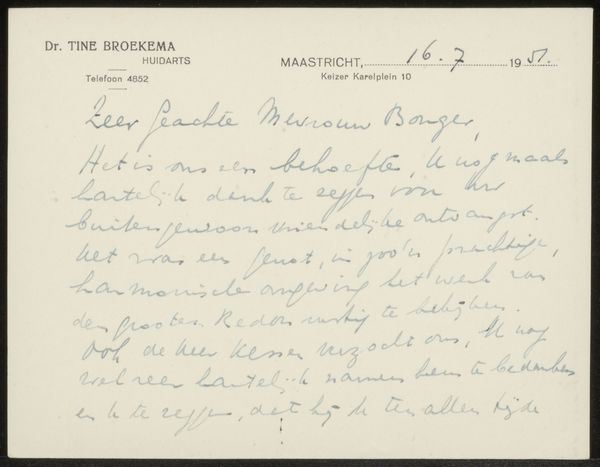 Dr. TINE BROEKEMA
HUIDARTS
Telefoon 4852
MAASTRICHT, 16.7 1951.
Keizer Karelplein 10
Zeer Geachte Mevrouw Bonger,
Het is ons een behoefte, U nog maals
hartelijk dank te zeggen voor uw
buitengewoon vriendelijke ontvangst.
Het was een genot, in zoo'n prachtige,
harmonische omgeving het werk van
den grooten Redon rustig te bekijken.
Ook de Heer Kessen verzocht ons, U nog
wel zeer hartelijk namens hem te bedanken
en U te zeggen, dat hij U ten allen tijde